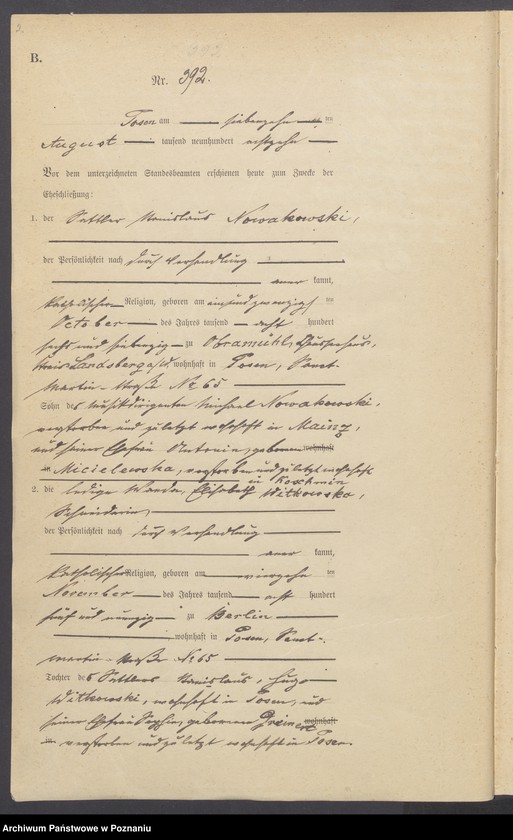 B.
Nr. 392.
Posen am siebenzehn ten
August tausend neunhundert achtzehn
Vor dem unterzeichneten Standesbeamten erschienen heute zum Zwecke der
Eheschließung:
1. der Sattler Stanislaus Nowakowski,
der Persönlichkeit nach durch Verhandlung
aner kannt,
katholischer Religion, geboren am einundzwanzigsten
October des Jahres tausend acht hundert
sechs und siebenzig zu Obramühl, Chausseehaus,
Kreis Landsberg a/W wohnhaft in Posen, Sanct-
Martin-Straße No 65
Sohn des Musikdirigenten Michael Nowakowski,
verstorben und zuletzt wohnhaft in Mainz,
und seiner Ehefrau Antonie, geborenen wohnhaft
in Micielewska, verstorben und zuletzt wohnhaft
in Koschmin
2. die ledige Wanda, Elisabeth Witkowska,
Schneiderin,
der Persönlichkeit nach durch Verhandlung
aner kannt,
katholischer Religion, geboren am vierzehn ten
November des Jahres tausend acht hundert
fünf und neunzig zu Berlin
wohnhaft in Posen, Sanct-
Martin-Straße No 65
Tochter des Sattlers Stanislaus, Hugo
Witkowski, wohnhaft in Posen, und
seiner Ehefrau Sophie, geborenen wohnhaft
in verstorben und zuletzt wohnhaft in Posen.
Archiwum Państwowe w Poznaniu